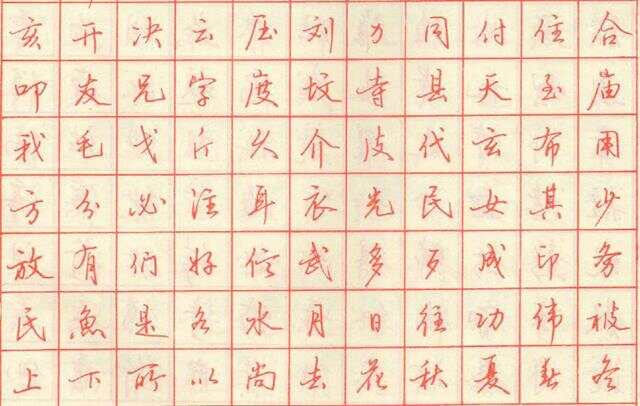 亥开决云压刘力同付住合
叩友兄字度坟寺县天至庙
我毛戈斤久介皮代玄布用
方分必注耳衣先民女其少
放有们好信武多歹成印务
民魚是名水月日往功伟被
上下所以尚去花秋夏春冬